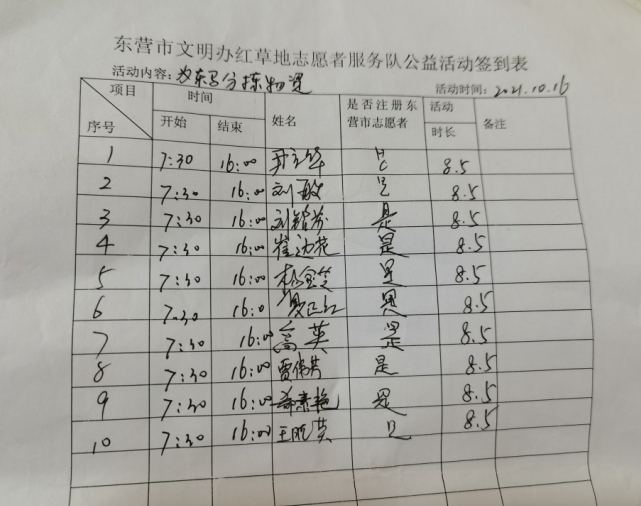 东营市文明办红草地志愿者服务队公益活动签到表
活动内容: 为东营分拣物资 活动时间: 2021.10.16
项目 序号 时间 开始 结束 姓名 是否注册东营市志愿者 活动时长 备注
1 7:30 16:00 8.5
2 7:30 16:00 刘敏 是 8.5
3 7:30 16:00 刘 是 8.5
4 7:30 16:00 崔 花 是 8.5
5 7:30 16:00 杨 是 8.5
6 7:30 16:0 夏正红 是 8.5
7 7:30 16:00 高英 是 8.5
8 7:30 16:00 贾伟芳 是 8.5
9 7:30 16:00 艳 是 8.5
10 7:30 16:00 王 英 是 8.5